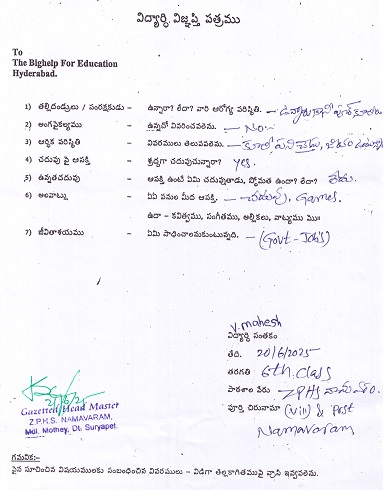 విద్యార్థి విజ్ఞప్తి పత్రము
To
The Bighelp For Education
Hyderabad.
1) తల్లిదండ్రులు / సంరక్షకుడు - ఉన్నారా? లేదా? వారి ఆరోగ్య పరిస్థితి. -
2) అంగవైకల్యము - ఉన్నదో వివరించవలెను. - No.
3) ఆర్థిక పరిస్థితి - వివరములు తెలుపవలెను. -
4) చదువు పై ఆసక్తి - శ్రద్ధగా చదువుచున్నారా? Yes.
5) ఉన్నతచదువు - ఆసక్తి ఉంటే ఏమి చదువుతాడు, స్తోమత ఉందా? లేదా? - లేదు.
6) అలవాట్లు - ఏమి పనుల మీద ఆసక్తి. - చదువు, Games.
ఉదా - కవిత్వము, సంగీతము, అల్లికలు, నాట్యము ము॥
7) జీవితాశయము - ఏమి సాధించాలనుకుంటున్నది. - (Govt - Job's)
V. mahesh
విద్యార్థి సంతకం
తేది. 20/6/2025
తరగతి 6th class
పాఠశాల పేరు ZPHS నామవరం.
పూర్తి చిరునామా (Vill) & Post
Namavaram
21/6/25
Gazetted Head Master
Z.P.H.S. NAMAVARAM,
Mdl. Mothey, Dt. Suryapet.
గమనిక:-
పైన సూచించిన విషయములకు సంబంధించిన వివరములు - విడిగా తెల్లకాగితముపై వ్రాసి ఇవ్వవలెను.